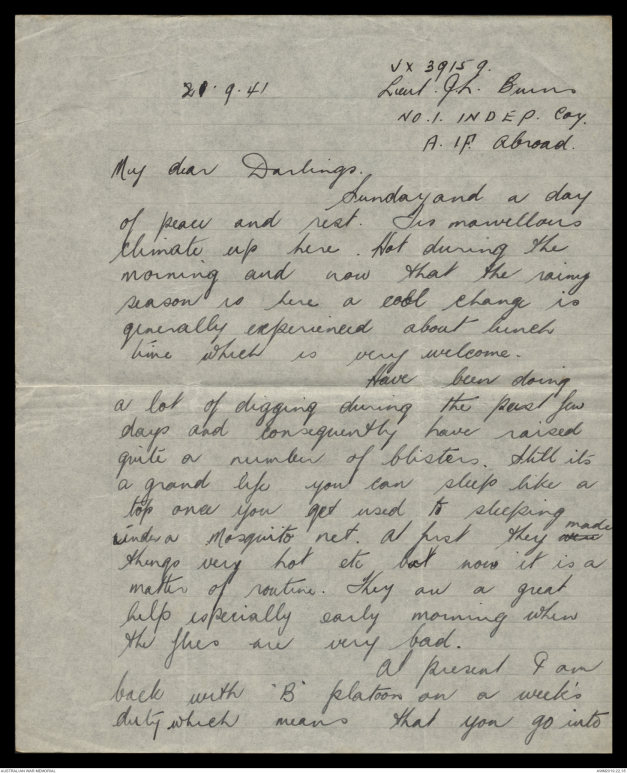 VX 39159.
21.9.41 Lieut. J.L. Burns
NO.1. INDEP. Coy.
A.I.F. Abroad.
My dear Darlings.
Sunday and a day
of peace and rest. Tis marvellous
climate up here. Hot during the
morning and now that the rainy
season is here a cool change is
generally experienced about lunch
time which is very welcome.
Have been doing
a lot of digging during the past few
days and consequently have raised
quite a number of blisters. Still its
a grand life you can sleep like a
top once you get used to sleeping
under a Mosquito net. At first they made
things very hot etc but now it is a
matter of routine. They are a great
help especially early morning when
the flies are very bad.
At present I am
back with 'B' platoon on a week's
duty which means that you go into
AUSTRALIAN WAR MEMORIAL